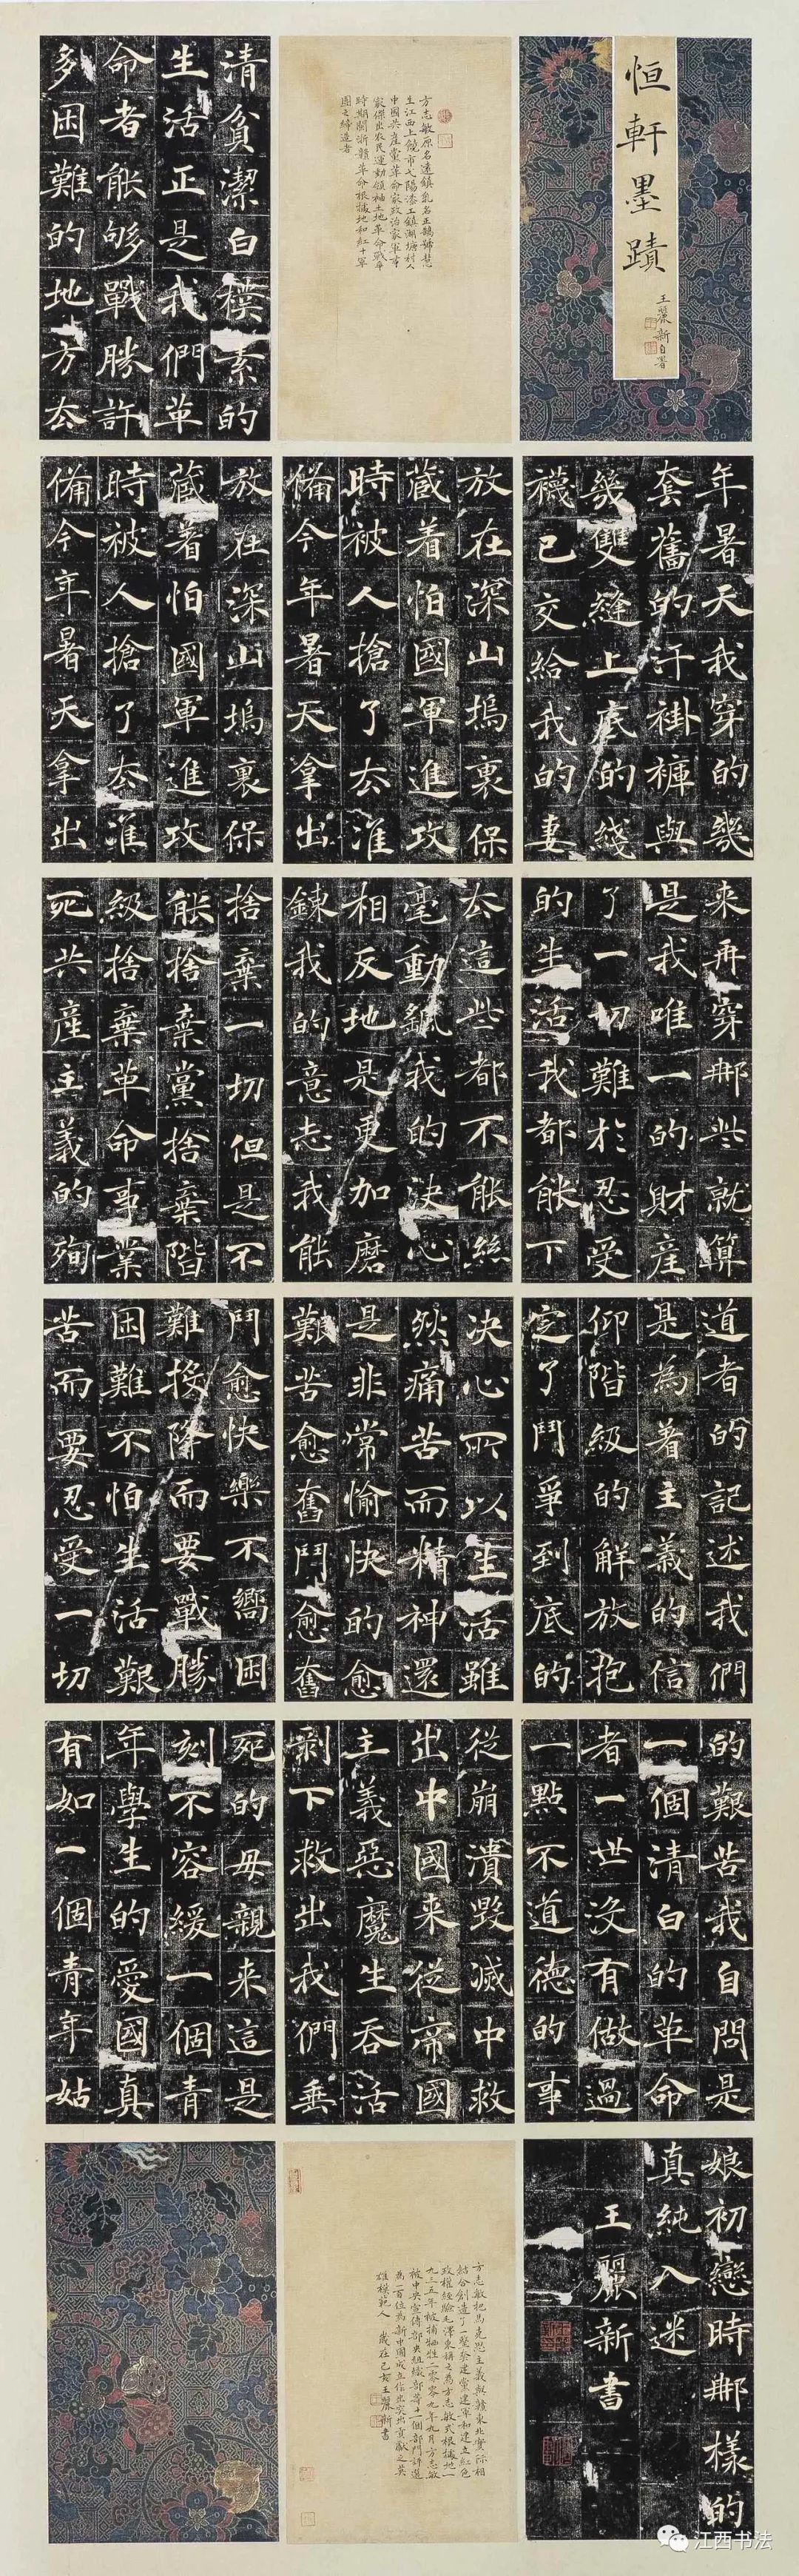 恒軒墨蹟
王麗新自署
方志敏原名遠鎮乳名正鵠號慧
生江西上饒市弋陽漆工鎮湖塘村人
中國共產黨革命家政治家軍事
家傑出農民運動領袖土地革命戰爭
時期閩浙贛革命根據地和紅十軍
團之締造者
清貧潔白樸素的
生活正是我們革
命者能夠戰勝許
多困難的地方去
年暑天我穿的幾
套舊的汗褂褲與
幾雙縫上底的綫
襪已交給我的妻
放在深山塢裏保
藏着怕國軍進攻
時被人搶了去准
備今年暑天拿出
放在深山塢裏保
藏着怕國軍進攻
時被人搶了去准
備今年暑天拿出
來再穿那些就算
是我唯一的財産
了一切難於忍受
的生活我都能下
去這些都不能絲
毫動我的决心
相反地是更加磨
鍊我的意志我能
捨棄一切但是不
能捨棄黨捨棄階
級捨棄革命事業
死共産主義的殉
道者的記述我們
是為着主義的信
仰階級的解放抱
定了鬥爭到底的
决心所以生活雖
然痛苦而精神還
是非常愉快的愈
艱苦愈奮鬥愈奮
鬥愈快樂不嚮困
難投降而要戰勝
困難不怕生活艱
苦而要忍受一切
的艱苦我自問是
一個清白的革命
者一世没有做過
一點不道德的事
從崩潰毀滅中救
出中國来從帝國
主義惡魔生吞活
剥下救出我們垂
死的母親来這是
刻不容緩一個青
年學生的愛國真
有如一個青年姑
娘初戀時那樣的
真純入迷
王麗新書
方志敏把馬克思主義與贛東北實際相
結合創造了一整套建黨建軍和建立紅色
政權經驗毛澤東稱之為方志敏式根據地一
九三五年被捕犧牲二零零九年九月方志敏
被中央宣傳部央組織部等十一個部門評選
為一百位為新中國成立作出突出貢獻之英
雄模範人 歲在己亥王麗新書
江西书法